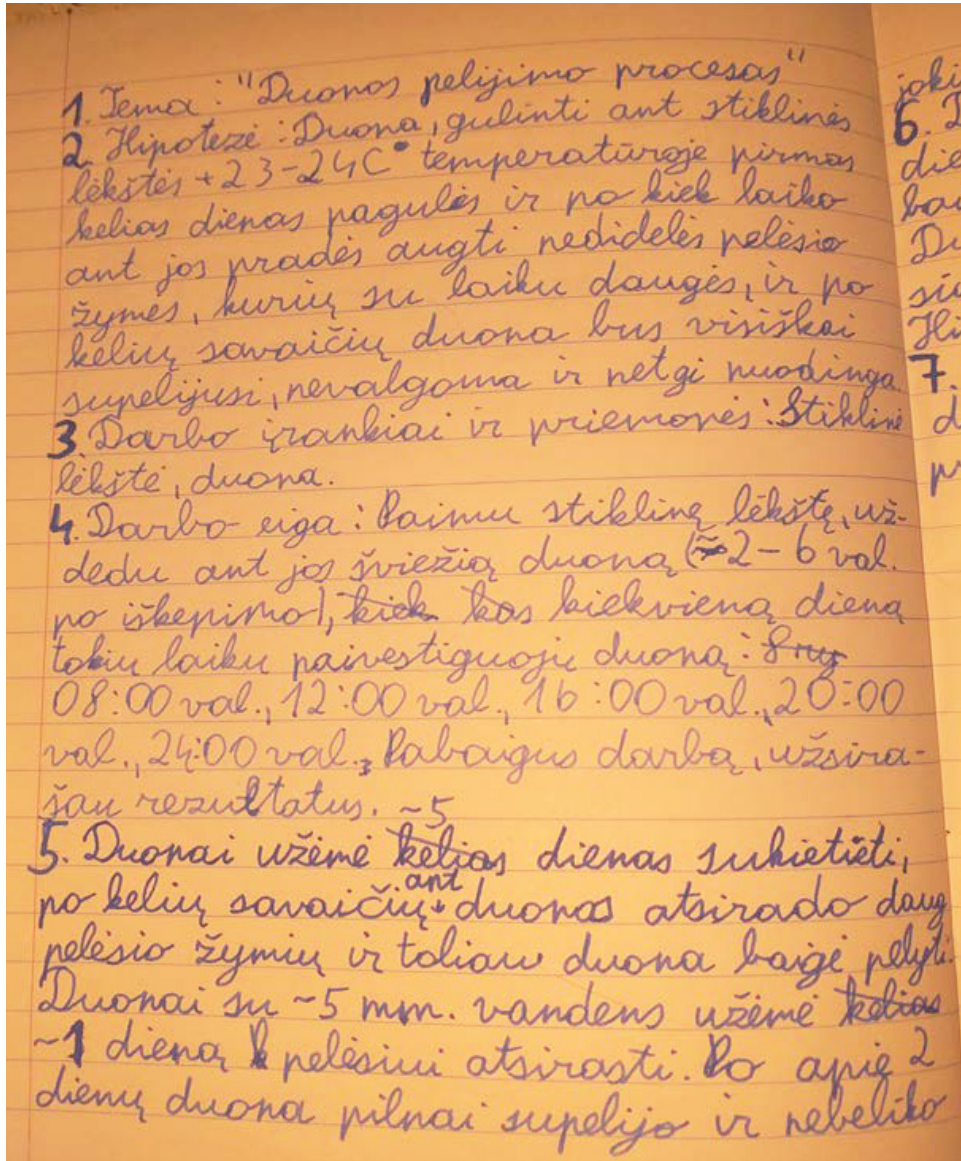 1. Tema: "Duonos pelijimo procesas"
2. Hipotezė: Duona, gulinti ant stiklinės
lėkštės +23-24C° temperatūroje pirmas
kelias dienas pagulės ir po kiek laiko
ant jos pradės augti nedidelės pelėsio
žymės, kurių su laiku daugės, ir po
kelių savaičių duona bus visiškai
supelijusi, nevalgoma ir netgi nuodinga.
3. Darbo įrankiai ir priemonės: Stiklinė
lėkštė, duona.
4. Darbo eiga: Paimu stiklinę lėkštę, už-
dedu ant jos šviežią duoną (~2-6 val.
po iškepimo), kiek kas kiekvieną dieną
tokiu laiku painvestiguoju duoną: 8 ry
08:00 val., 12:00 val., 16:00 val., 20:00
val., 24:00 val., Pabaigus darbą, užsira-
šau rezultatus.
~5
5. Duonai užėmė kelias dienas sukietėti,
ant
po kelių savaičių duonos atsirado daug
pelėsio žymių ir toliau duona baigė pelyti.
Duonai su ~5 mm. vandens užėmė kelias
~1 dieną pelėsiui atsirasti. Po apie 2
dienų duona pilnai supelijo ir nebeliko
joki
6. D
die
bau
Du
sia
Hi
7.
d
pr